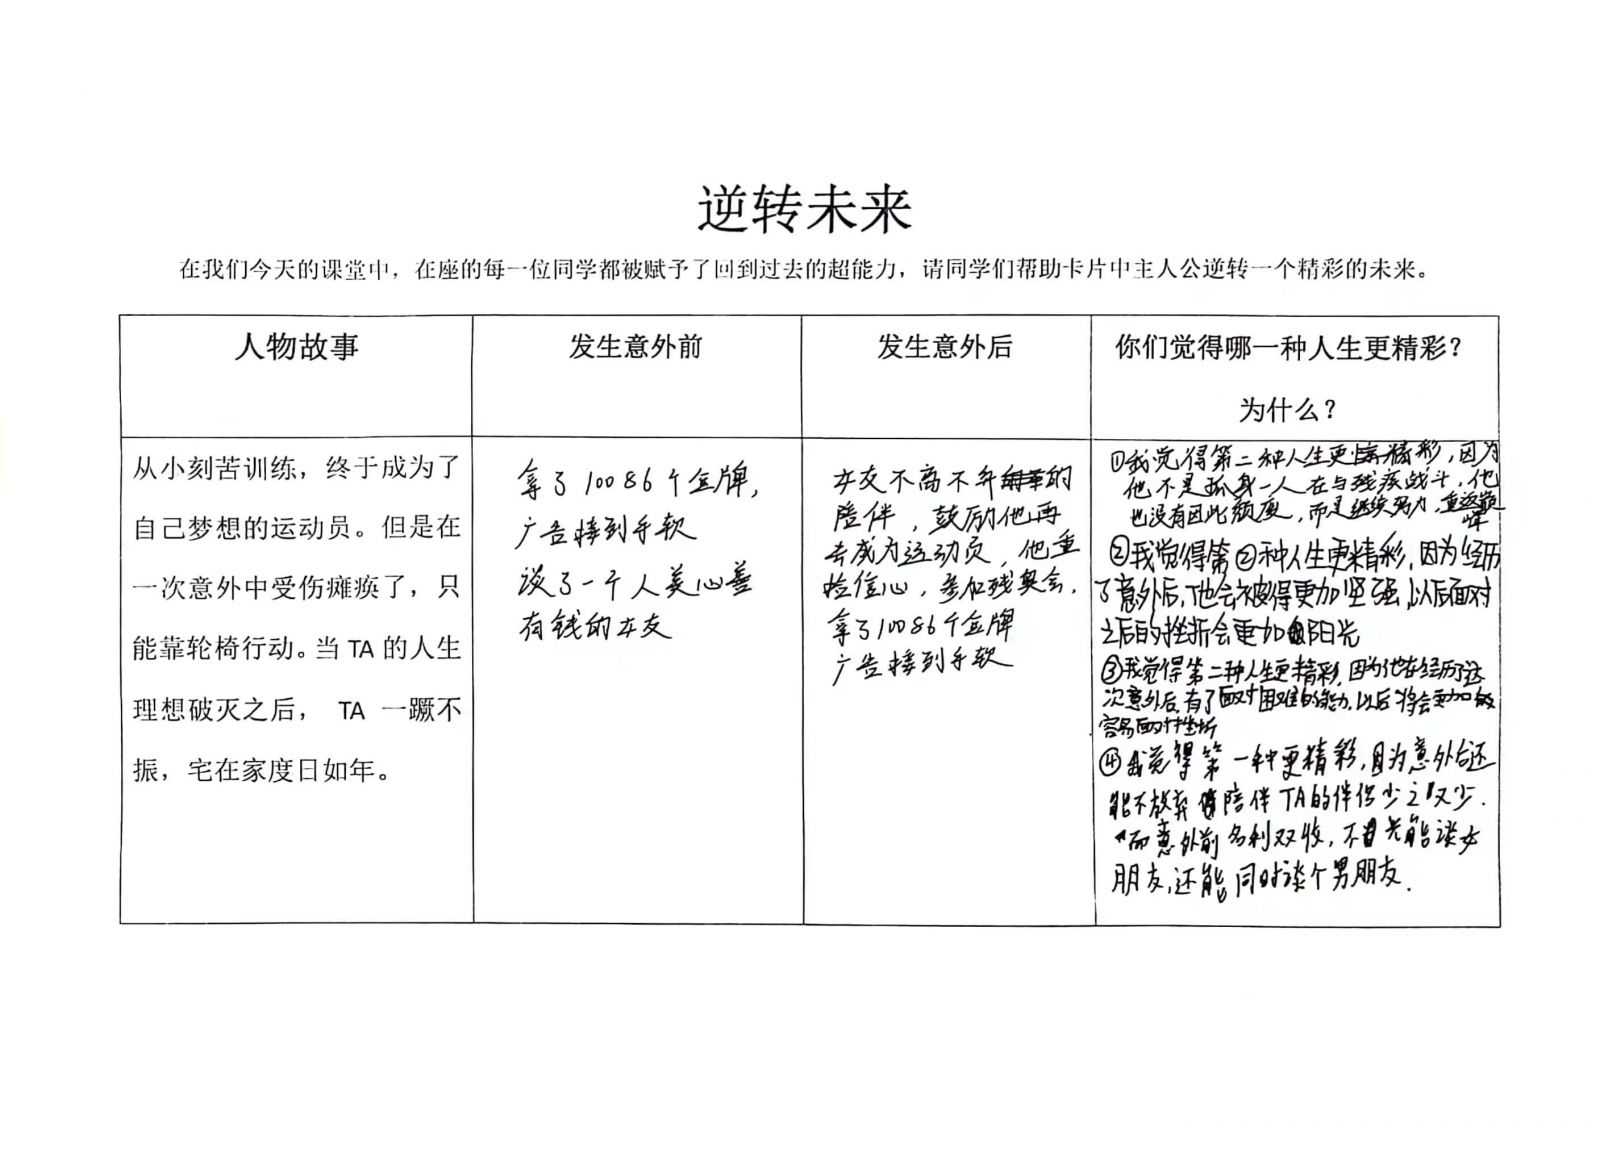 逆转未来
在我们今天的课堂中，在座的每一位同学都被赋予了回到过去的超能力，请同学们帮助卡片中主人公逆转一个精彩的未来。
人物故事
发生意外前
发生意外后
你们觉得哪一种人生更精彩？
为什么？
从小刻苦训练，终于成为了
自己梦想的运动员。但是在
一次意外中受伤瘫痪了，只
能靠轮椅行动。当 TA 的人生
理想破灭之后， TA 一蹶不
振，宅在家度日如年。
拿了10086个金牌，
广告接到手软
谈了一个人美心善
有钱的女友
女友不离不弃的
陪伴，鼓励他再
去成为运动员，他重
捡信心，参加残奥会，
拿了10086个金牌
广告接到手软
①我觉得第二种人生更精彩，因为
他不是孤身一人在与残疾战斗，他
也没有因此颓废，而是继续努力，重返巅
峰
②我觉得第②种人生更精彩，因为经历
了意外后，他会被得更加坚强，以后面对
之后的挫折会更加阳光
③我觉得第二种人生更精彩，因为他在经历了这
次意外后，有了面对困难的能力，以后将会更加
容易面对挫折
④我觉得第一种更精彩，因为意外后还
能不放弃陪伴TA的伴侣少之又少.
而意外前名利双收，不光能谈女
朋友，还能同时谈个男朋友.